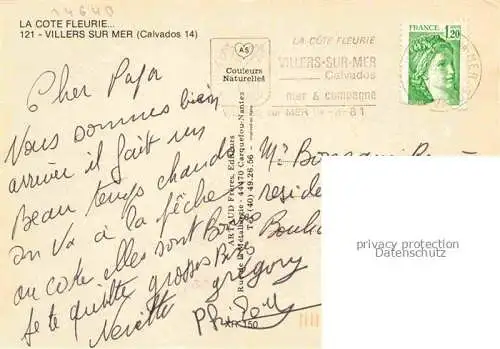 14640
LA COTE FLEURIE...
121 - VILLERS SUR MER (Calvados 14)
AS
Couleurs
Naturelles
LA CÔTE FLEURIE
VILLERS-SUR-MER
Calvados
mer & campagne
FRANCE
1,20
Cher Papa
Nous sommes bien
arrivé il fait un
Beau temps chaud
on va à la pêche
au coté elles sont Bonne
Je te quitte grosses Bises
grégory
ARTAUD Frères, Editeurs
Rue de la Métallurgie - 44470 Carquefou-Nantes
Tél. (40) 49.28.56
XR 150
Mr
reside
privacy protection
Datenschutz